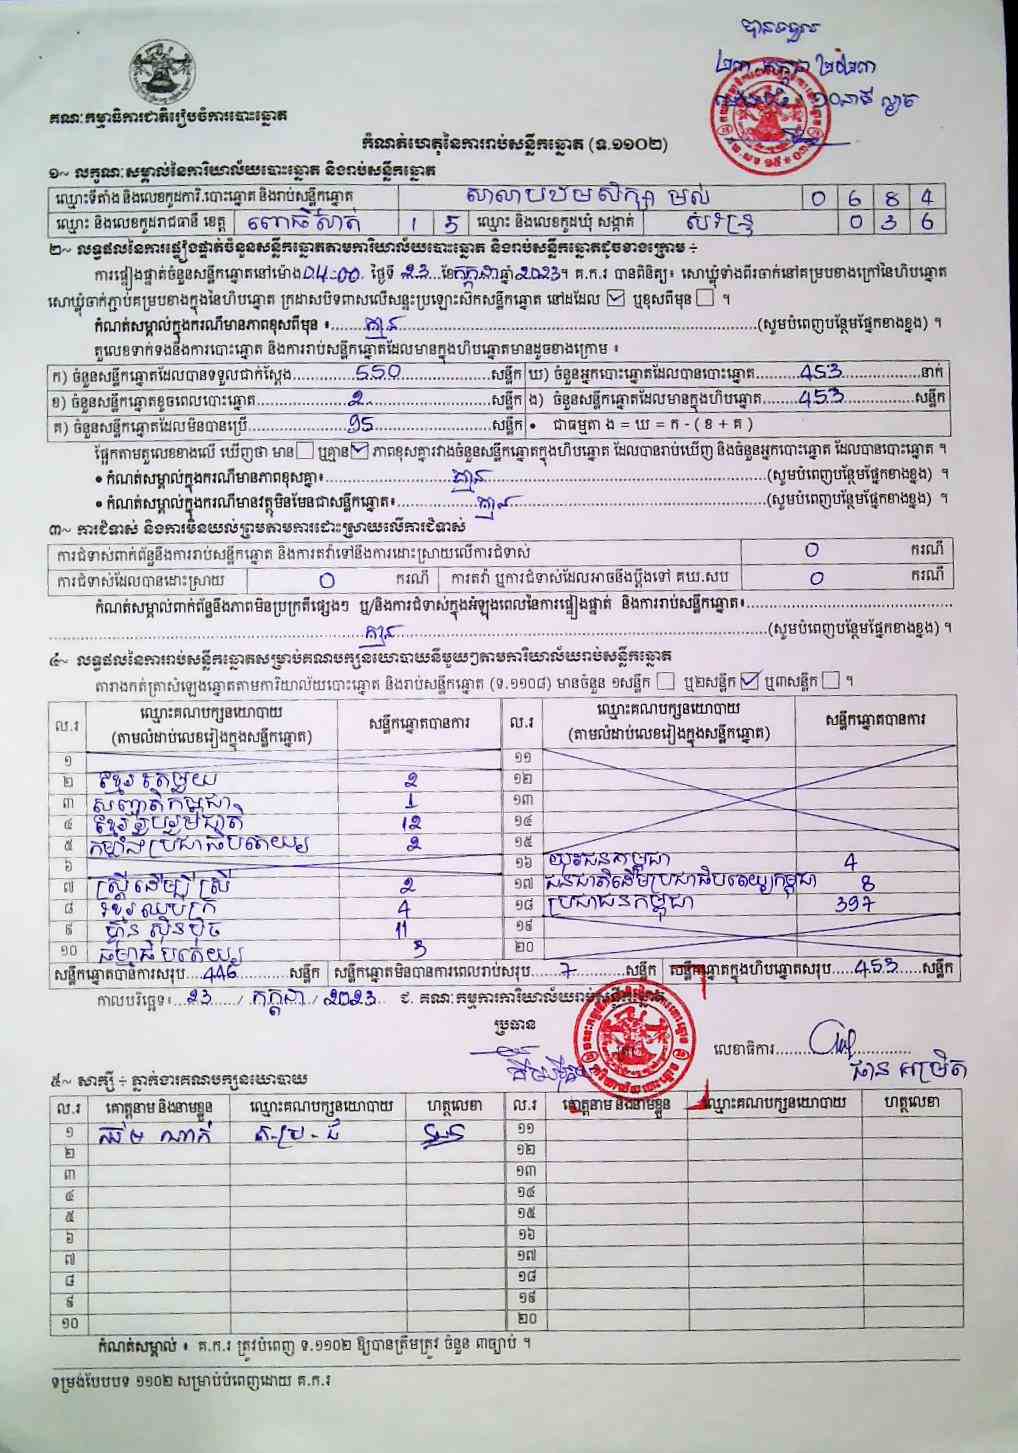 បានទទួល
២៣ កក្កដា ២០២៣
គណៈកម្មាធិការជាតិរៀបចំការបោះឆ្នោត
កំណត់ហេតុនៃការរាប់សន្លឹកឆ្នោត (ទ.១១០២)
១~ លក្ខណៈសម្គាល់នៃការិយាល័យបោះឆ្នោត និងរាប់សន្លឹកឆ្នោត
ឈ្មោះទីតាំង និងលេខកូដការិ.បោះឆ្នោត និងរាប់សន្លឹកឆ្នោត សាលាបឋមសិក្សា មល់ 0 6 8 4
ឈ្មោះ និងលេខកូដរាជធានី ខេត្ត ពោធិ៍សាត់ 1 5 ឈ្មោះ និងលេខកូដឃុំ សង្កាត់ 0 3 6
២~ លទ្ធផលនៃការផ្ទៀងផ្ទាត់ចំនួនសន្លឹកឆ្នោតតាមការិយាល័យបោះឆ្នោត និងរាប់សន្លឹកឆ្នោតដូចខាងក្រោម ÷
ការផ្ទៀងផ្ទាត់ចំនួនសន្លឹកឆ្នោតនៅម៉ោង 04:00 ថ្ងៃទី 23 ខែ កក្កដា ឆ្នាំ 2023។ គ.ក.រ បានពិនិត្យ៖ សោឃ្លុំទាំងពីរចាក់នៅគម្របខាងក្រៅនៃហិបឆ្នោត
សោឃ្លុំចាក់ភ្ជាប់គម្របខាងក្នុងនៃហិបឆ្នោត ក្រដាសបិទពាសលើសន្ទះប្រឡោះស៊កសន្លឹកឆ្នោត នៅដដែល ☑ ឬខុសពីមុន ☐ ។
កំណត់សម្គាល់ក្នុងករណីមានភាពខុសពីមុន ៖ គ្មាន (សូមបំពេញបន្ថែមផ្នែកខាងខ្នង) ។
តួលេខទាក់ទងនឹងការបោះឆ្នោត និងការរាប់សន្លឹកឆ្នោតដែលមានក្នុងហិបឆ្នោតមានដូចខាងក្រោម ៖
ក) ចំនួនសន្លឹកឆ្នោតដែលបានទទួលជាក់ស្តែង 550 សន្លឹក ឃ) ចំនួនអ្នកបោះឆ្នោតដែលបានបោះឆ្នោត 453 នាក់
ខ) ចំនួនសន្លឹកឆ្នោតខូចពេលបោះឆ្នោត 2 សន្លឹក ង) ចំនួនសន្លឹកឆ្នោតដែលមានក្នុងហិបឆ្នោត 453 សន្លឹក
គ) ចំនួនសន្លឹកឆ្នោតដែលមិនបានប្រើ 95 សន្លឹក • ជាធម្មតា ង = ឃ = ក - ( ខ + គ )
ផ្អែកតាមតួលេខខាងលើ ឃើញថា មាន ☐ ឬគ្មាន ☑ ភាពខុសគ្នារវាងចំនួនសន្លឹកឆ្នោតក្នុងហិបឆ្នោត ដែលបានរាប់ឃើញ និងចំនួនអ្នកបោះឆ្នោត ដែលបានបោះឆ្នោត ។
• កំណត់សម្គាល់ក្នុងករណីមានភាពខុសគ្នា៖ គ្មាន (សូមបំពេញបន្ថែមផ្នែកខាងខ្នង) ។
• កំណត់សម្គាល់ក្នុងករណីមានវត្ថុមិនមែនជាសន្លឹកឆ្នោត៖ គ្មាន (សូមបំពេញបន្ថែមផ្នែកខាងខ្នង) ។
៣~ ការជំទាស់ និងការមិនយល់ព្រមតាមការដោះស្រាយលើការជំទាស់
ការជំទាស់ពាក់ព័ន្ធនឹងការរាប់សន្លឹកឆ្នោត និងការតវ៉ាទៅនឹងការដោះស្រាយលើការជំទាស់ 0 ករណី
ការជំទាស់ដែលបានដោះស្រាយ 0 ករណី ការតវ៉ា ឬការជំទាស់ដែលអាចនឹងប្តឹងទៅ គឃ.សប 0 ករណី
កំណត់សម្គាល់ពាក់ព័ន្ធនឹងភាពមិនប្រក្រតីផ្សេងៗ ឬ/និងការជំទាស់ក្នុងអំឡុងពេលនៃការផ្ទៀងផ្ទាត់ និងការរាប់សន្លឹកឆ្នោត៖
គ្មាន (សូមបំពេញបន្ថែមផ្នែកខាងខ្នង) ។
៤~ លទ្ធផលនៃការរាប់សន្លឹកឆ្នោតសម្រាប់គណបក្សនយោបាយនីមួយៗតាមការិយាល័យរាប់សន្លឹកឆ្នោត
តារាងកត់ត្រាសំឡេងឆ្នោតតាមការិយាល័យបោះឆ្នោត និងរាប់សន្លឹកឆ្នោត (ទ.១១០៨) មានចំនួន ១សន្លឹក ☐ ឬ២សន្លឹក ☑ ឬ៣សន្លឹក ☐ ។
ល.រ ឈ្មោះគណបក្សនយោបាយ (តាមលំដាប់លេខរៀងក្នុងសន្លឹកឆ្នោត) សន្លឹកឆ្នោតបានការ ល.រ ឈ្មោះគណបក្សនយោបាយ (តាមលំដាប់លេខរៀងក្នុងសន្លឹកឆ្នោត) សន្លឹកឆ្នោតបានការ
១ ១១
២ ខ្មែរតែមួយ 2 ១២
៣ សញ្ជាតិកម្ពុជា 1 ១៣
៤ ខ្មែររួបរួមជាតិ 12 ១៤
៥ កម្លាំងប្រជាធិបតេយ្យ 2 ១៥
៦ ១៦ យុវជនកម្ពុជា 4
៧ ស្ត្រីដើម្បីស្ត្រី 2 ១៧ ជនជាតិដើមប្រជាធិបតេយ្យកម្ពុជា 8
៨ ខ្មែរឈប់ក្រ 4 ១៨ ប្រជាជនកម្ពុជា 397
៩ ហ៊្វុនស៊ិនប៉ិច 11 ១៩
១០ ធម្មាធិបតេយ្យ 3 ២០
សន្លឹកឆ្នោតបានការសរុប 446 សន្លឹក សន្លឹកឆ្នោតមិនបានការពេលរាប់សរុប 7 សន្លឹក សន្លឹកឆ្នោតក្នុងហិបឆ្នោតសរុប 453 សន្លឹក
កាលបរិច្ឆេទ៖ 23 / កក្កដា / 2023 ជ. គណៈកម្មការការិយាល័យរាប់សន្លឹកឆ្នោត
ប្រធាន
លេខាធិការ
៥~ សាក្សី ÷ ភ្នាក់ងារគណបក្សនយោបាយ
ល.រ គោត្តនាម និងនាមខ្លួន ឈ្មោះគណបក្សនយោបាយ ហត្ថលេខា ល.រ គោត្តនាម និងនាមខ្លួន ឈ្មោះគណបក្សនយោបាយ ហត្ថលេខា
១ ១១
២ ១២
៣ ១៣
៤ ១៤
៥ ១៥
៦ ១៦
៧ ១៧
៨ ១៨
៩ ១៩
១០ ២០
កំណត់សម្គាល់ ៖ គ.ក.រ ត្រូវបំពេញ ទ.១១០២ ឱ្យបានត្រឹមត្រូវ ចំនួន ៣ច្បាប់ ។
ទម្រង់បែបបទ ១១០២ សម្រាប់បំពេញដោយ គ.ក.រ